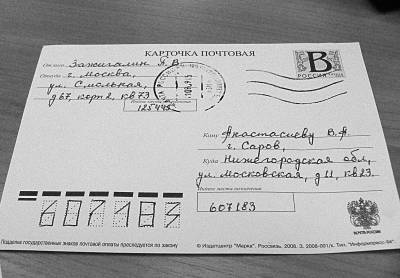 КАРТОЧКА ПОЧТОВАЯ
От кого Зажигалин Я.В.
Откуда г. Москва,
ул. Смольная,
д67, корп2, кв73
Индекс места отправления
125445
В
РОССИЯ
Кому Анастасиеву В.А.
г. Саров,
Куда Нижегородская обл,
ул. Московская, д 11, кв23.
Индекс места назначения
607183
607183
ПОЧТА РОССИИ
Подделка государственных знаков почтовой оплаты преследуется по закону
© Издатцентр "Марка", Россвязь, 2008. З. 2008-001/1. Тип. "Информпресс-94".